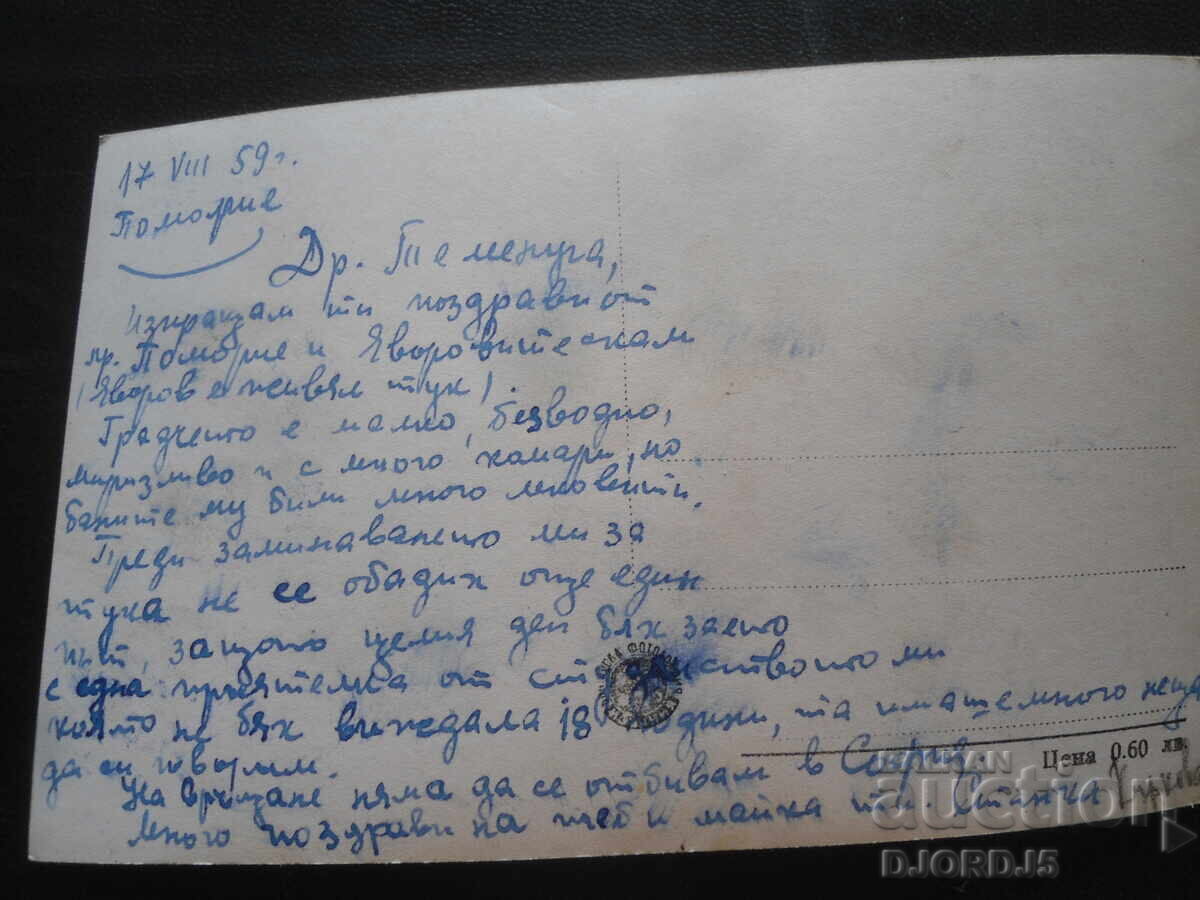 17 VIII 59 г.
Поморие
Др. Теменуга,
Изпращам ти поздрави от
гр. Поморие и Яворовите скали
(Яворов е живял тук).
Градчето е малко, безводно,
миризливо и с много комари, но
баните му били много лековити.
Преди заминаването ми за
тука не се обадих още един
път, защото целия ден бях заето
с една приятелка от студентството ми
която не бях виждала 18 години, та имахме много неща
да си говорим.
На връщане няма да се отбивам в София.
Много поздрави на теб и майка ти. Станка
Цена 0.60 лв.
BALKAN
auction
DJORDJ5